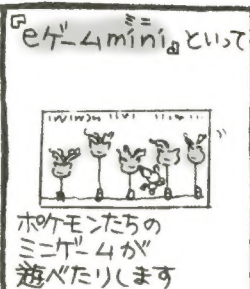 『eゲームmini』といって
ポケモンたちの
ミニゲームが
遊べたりします